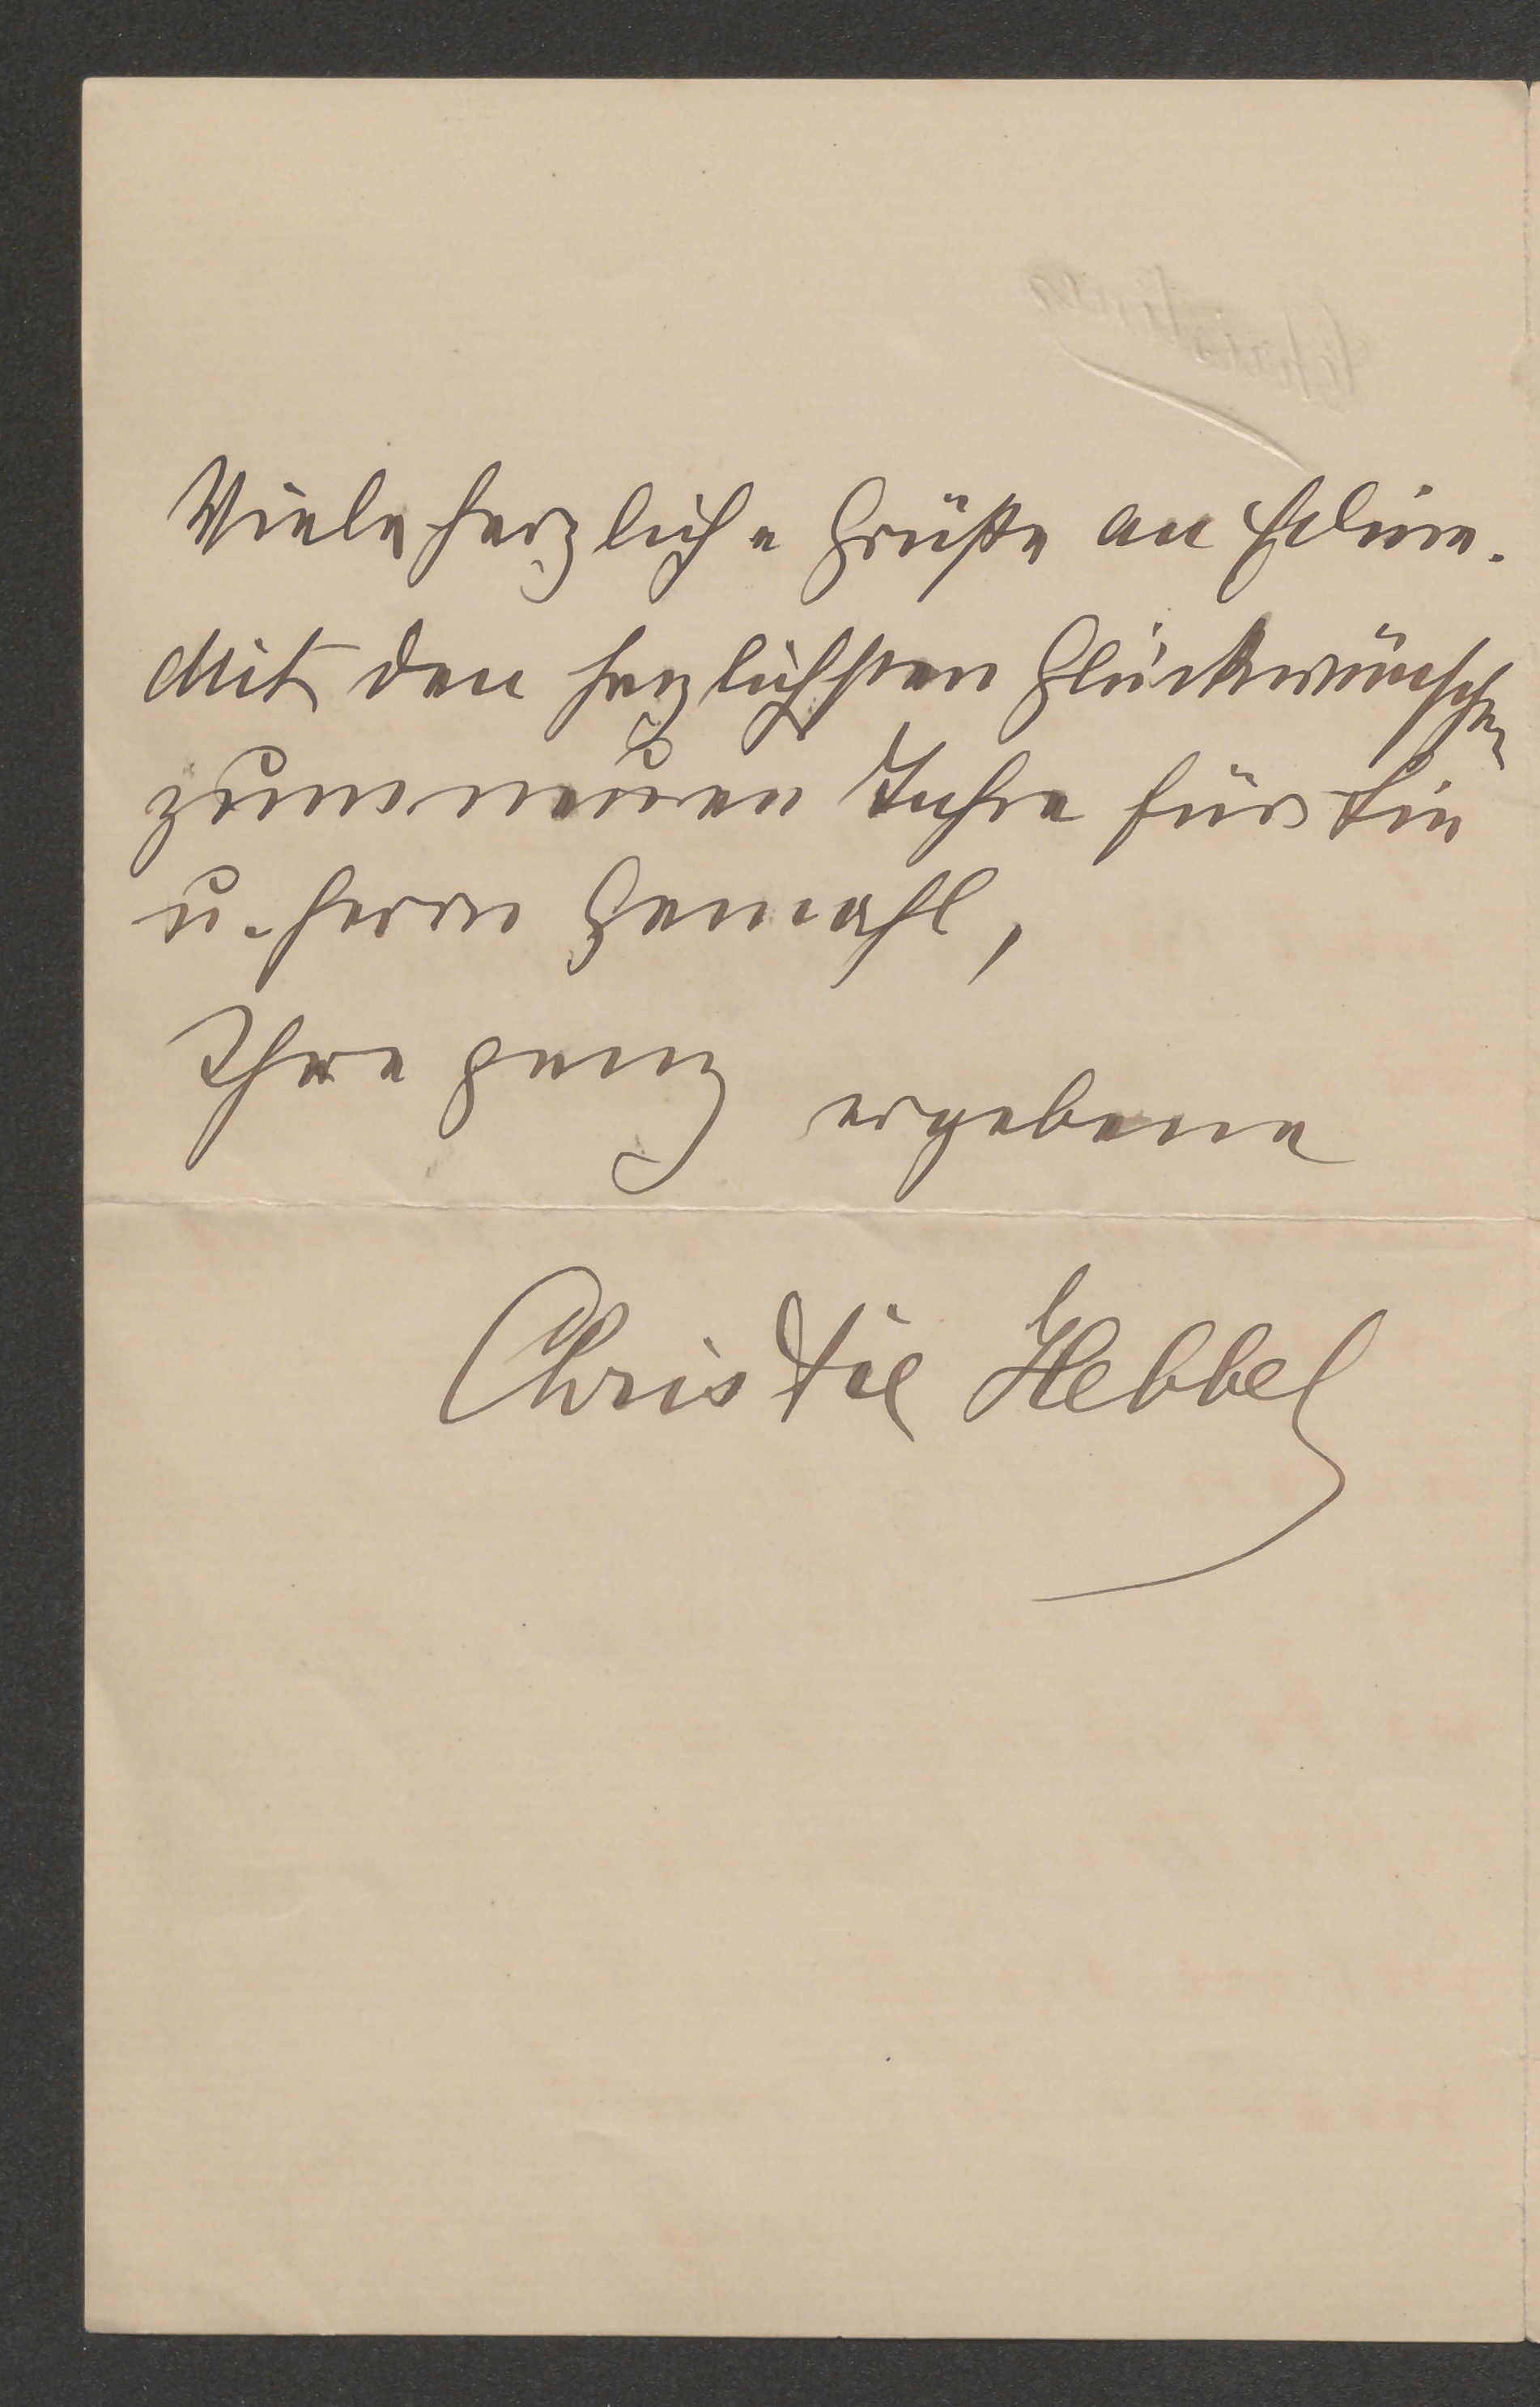 Viele herzliche Grüße an
Mit den herzlichsten Glückwünschen
zum neuen Jahre für Sie
u. Herrn Gemahl,
Ihre ganz ergebene
Christie Hebbel